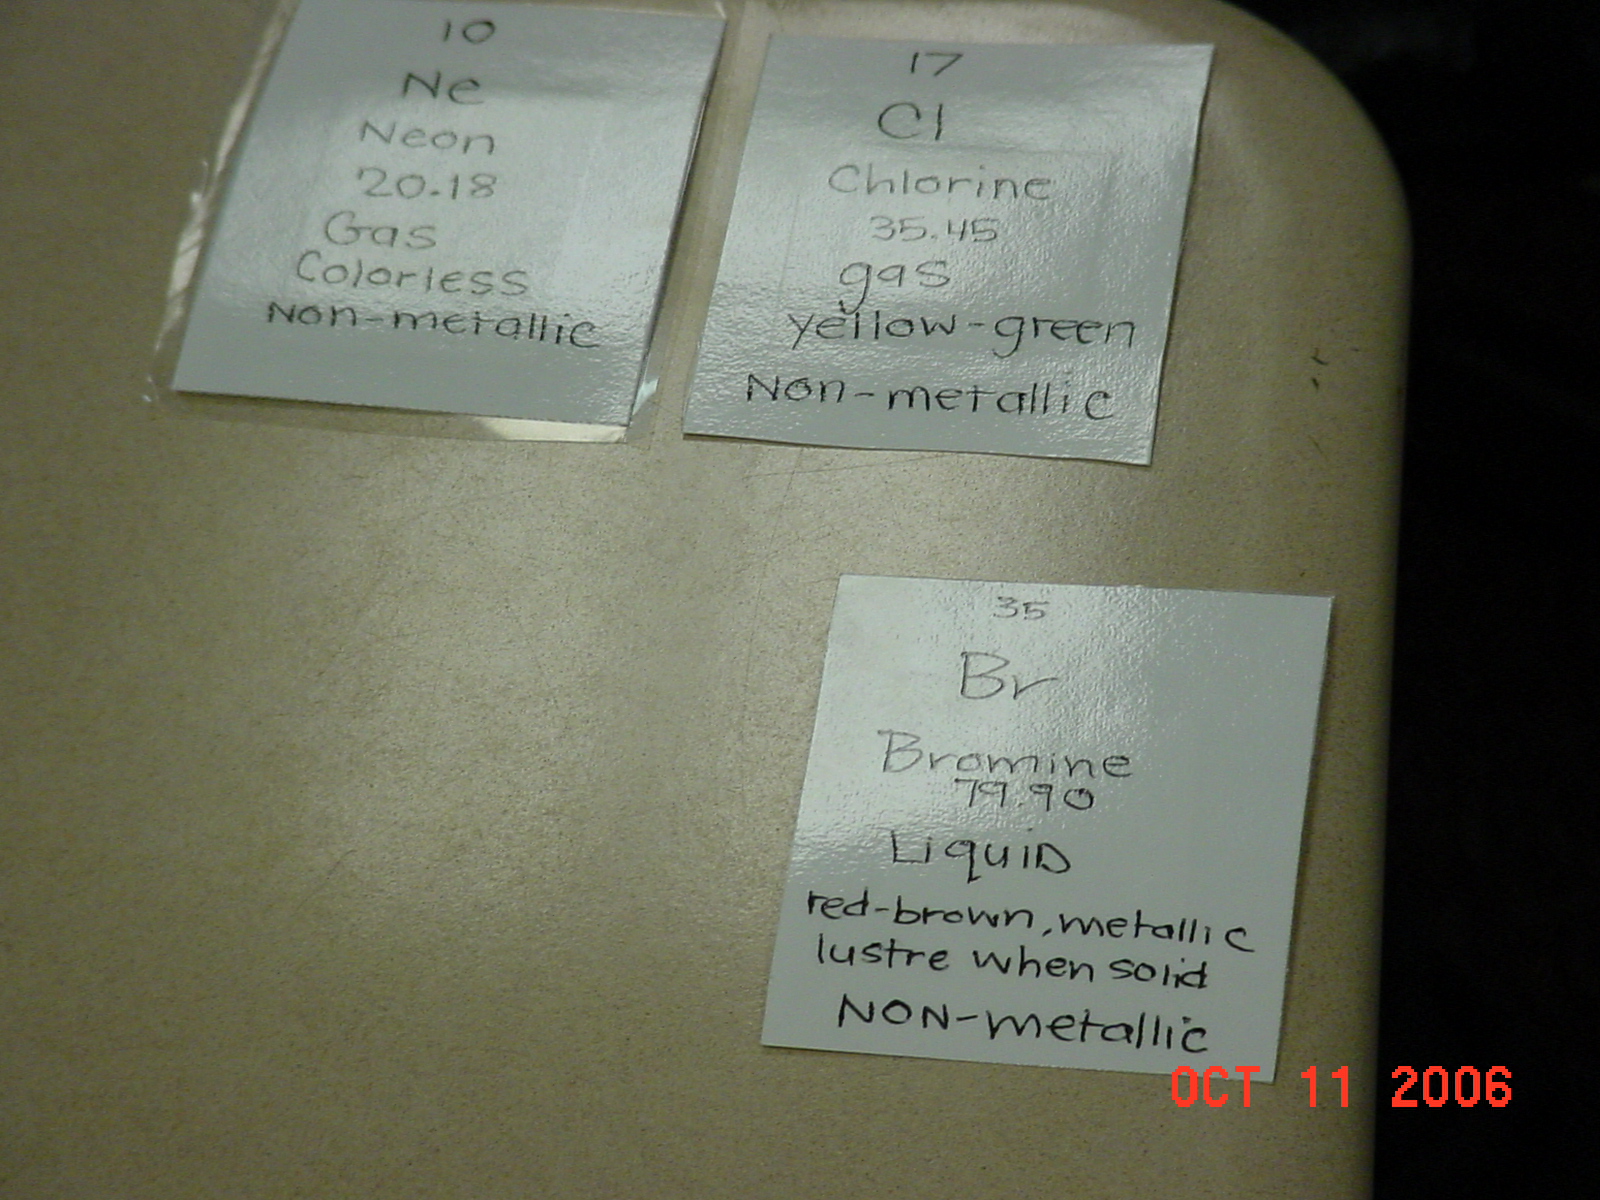 10
Ne
Neon
20.18
Gas
Colorless
Non-metallic
17
Cl
Chlorine
35.45
gas
yellow-green
Non-metallic
35
Br
Bromine
79.90
LiquiD
red-brown, metallic
lustre when solid
NON-metallic
OCT 11 2006